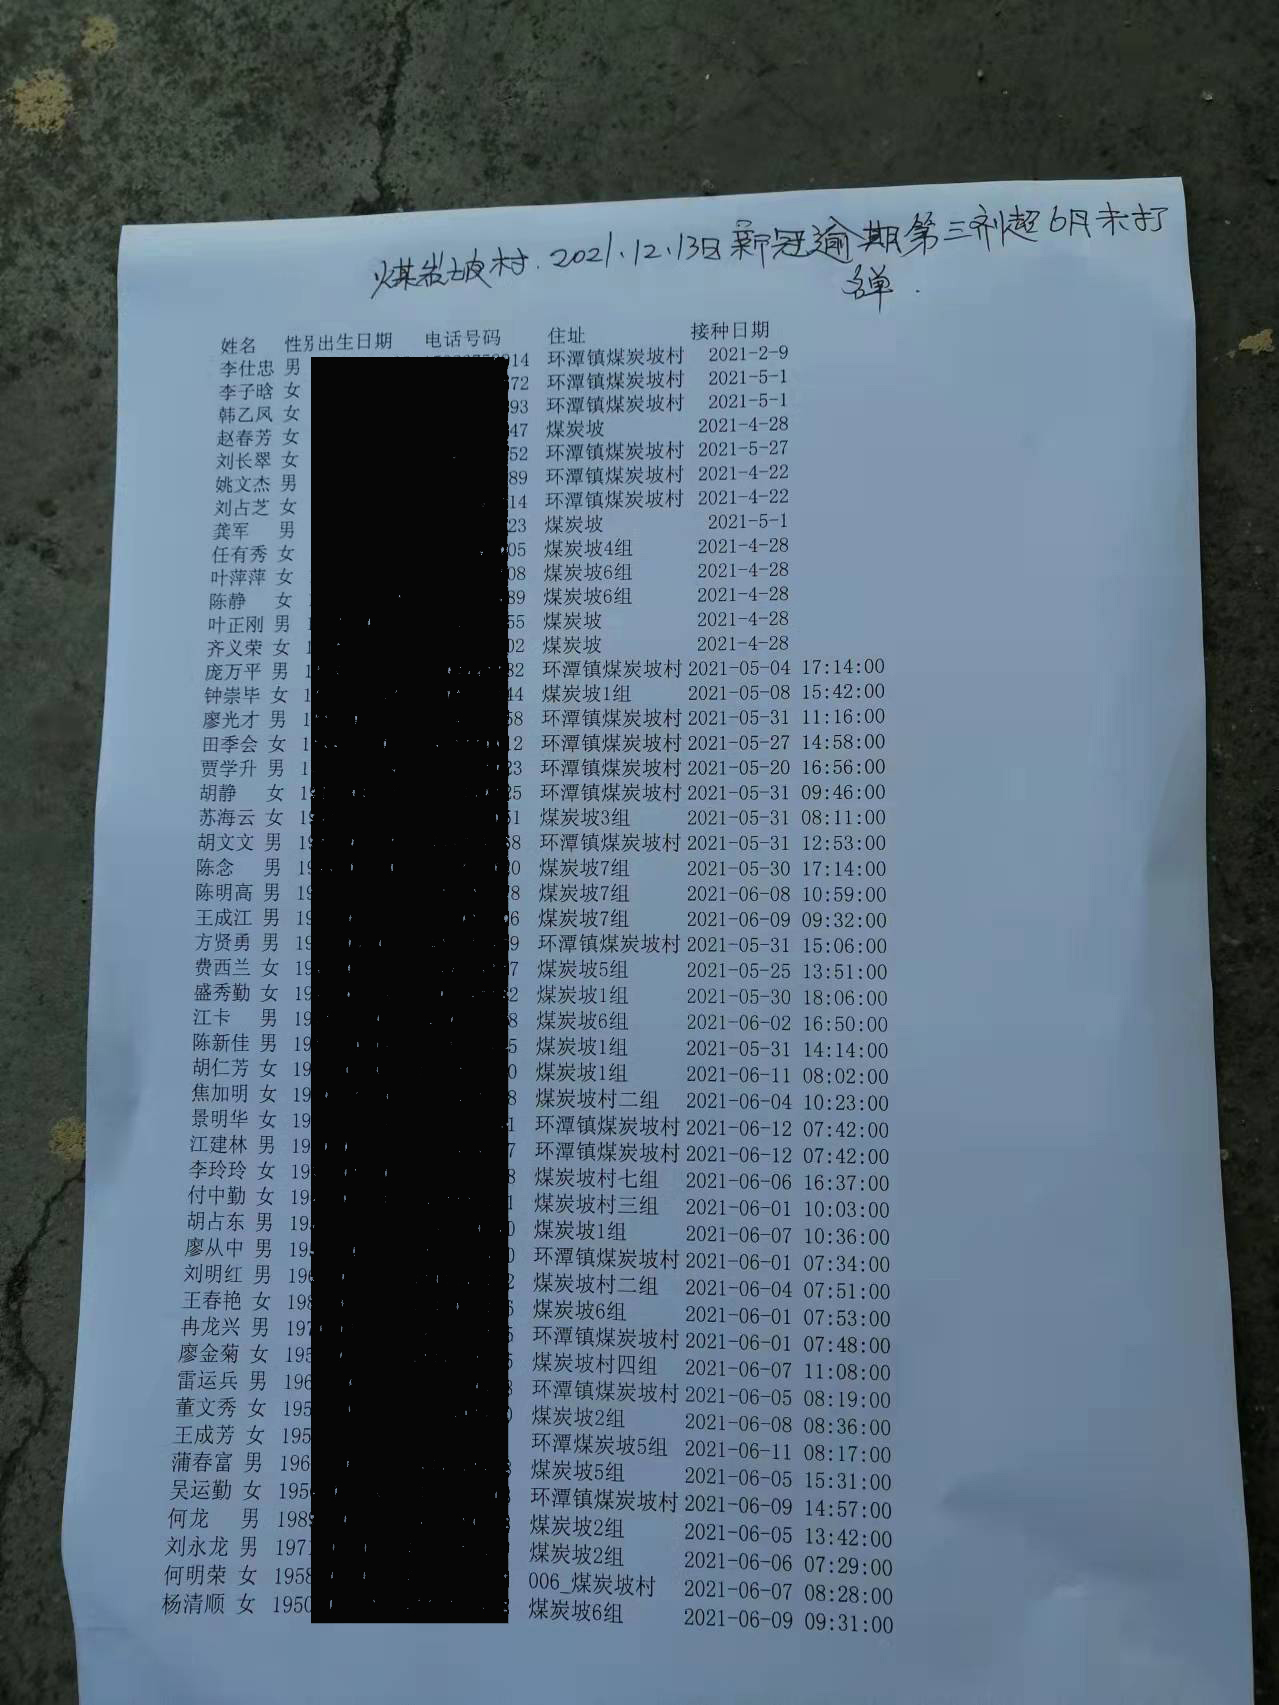 煤炭坡村.2021.12.13日新冠逾期第三剂超6月未打
名单.
姓名 性别出生日期 电话号码 住址 接种日期
李仕忠 男 914 环潭镇煤炭坡村 2021-2-9
李子晗 女 372 环潭镇煤炭坡村 2021-5-1
韩乙凤 女 393 环潭镇煤炭坡村 2021-5-1
赵春芳 女 47 煤炭坡 2021-4-28
刘长翠 女 52 环潭镇煤炭坡村 2021-5-27
姚文杰 男 89 环潭镇煤炭坡村 2021-4-22
刘占芝 女 14 环潭镇煤炭坡村 2021-4-22
龚军 男 23 煤炭坡 2021-5-1
任有秀 女 05 煤炭坡4组 2021-4-28
叶萍萍 女 08 煤炭坡6组 2021-4-28
陈静 女 89 煤炭坡6组 2021-4-28
叶正刚 男 55 煤炭坡 2021-4-28
齐义荣 女 1 02 煤炭坡 2021-4-28
庞万平 男 1 32 环潭镇煤炭坡村 2021-05-04 17:14:00
钟崇毕 女 1 44 煤炭坡1组 2021-05-08 15:42:00
廖光才 男 1 58 环潭镇煤炭坡村 2021-05-31 11:16:00
田季会 女 1 12 环潭镇煤炭坡村 2021-05-27 14:58:00
贾学升 男 1 23 环潭镇煤炭坡村 2021-05-20 16:56:00
胡静 女 19 25 环潭镇煤炭坡村 2021-05-31 09:46:00
苏海云 女 19 51 煤炭坡3组 2021-05-31 08:11:00
胡文文 男 19 68 环潭镇煤炭坡村 2021-05-31 12:53:00
陈念 男 19 20 煤炭坡7组 2021-05-30 17:14:00
陈明高 男 19 8 煤炭坡7组 2021-06-08 10:59:00
王成江 男 19 6 煤炭坡7组 2021-06-09 09:32:00
方贤勇 男 19 9 环潭镇煤炭坡村 2021-05-31 15:06:00
费西兰 女 19 7 煤炭坡5组 2021-05-25 13:51:00
盛秀勤 女 19 2 煤炭坡1组 2021-05-30 18:06:00
江卡 男 19 8 煤炭坡6组 2021-06-02 16:50:00
陈新佳 男 19 5 煤炭坡1组 2021-05-31 14:14:00
胡仁芳 女 19 0 煤炭坡1组 2021-06-11 08:02:00
焦加明 女 19 8 煤炭坡村二组 2021-06-04 10:23:00
景明华 女 19 1 环潭镇煤炭坡村 2021-06-12 07:42:00
江建林 男 19 7 环潭镇煤炭坡村 2021-06-12 07:42:00
李玲玲 女 19 8 煤炭坡村七组 2021-06-06 16:37:00
付中勤 女 19 1 煤炭坡村三组 2021-06-01 10:03:00
胡占东 男 19 0 煤炭坡1组 2021-06-07 10:36:00
廖从中 男 19 0 环潭镇煤炭坡村 2021-06-01 07:34:00
刘明红 男 196 2 煤炭坡村二组 2021-06-04 07:51:00
王春艳 女 198 6 煤炭坡6组 2021-06-01 07:53:00
冉龙兴 男 197 5 环潭镇煤炭坡村 2021-06-01 07:48:00
廖金菊 女 195 5 煤炭坡村四组 2021-06-07 11:08:00
雷运兵 男 196 3 环潭镇煤炭坡村 2021-06-05 08:19:00
董文秀 女 195 0 煤炭坡2组 2021-06-08 08:36:00
王成芳 女 195 环潭煤炭坡5组 2021-06-11 08:17:00
蒲春富 男 196 煤炭坡5组 2021-06-05 15:31:00
吴运勤 女 195 环潭镇煤炭坡村 2021-06-09 14:57:00
何龙 男 198 煤炭坡2组 2021-06-05 13:42:00
刘永龙 男 1971 煤炭坡2组 2021-06-06 07:29:00
何明荣 女 1958 006_煤炭坡村 2021-06-07 08:28:00
杨清顺 女 1950 煤炭坡6组 2021-06-09 09:31:00